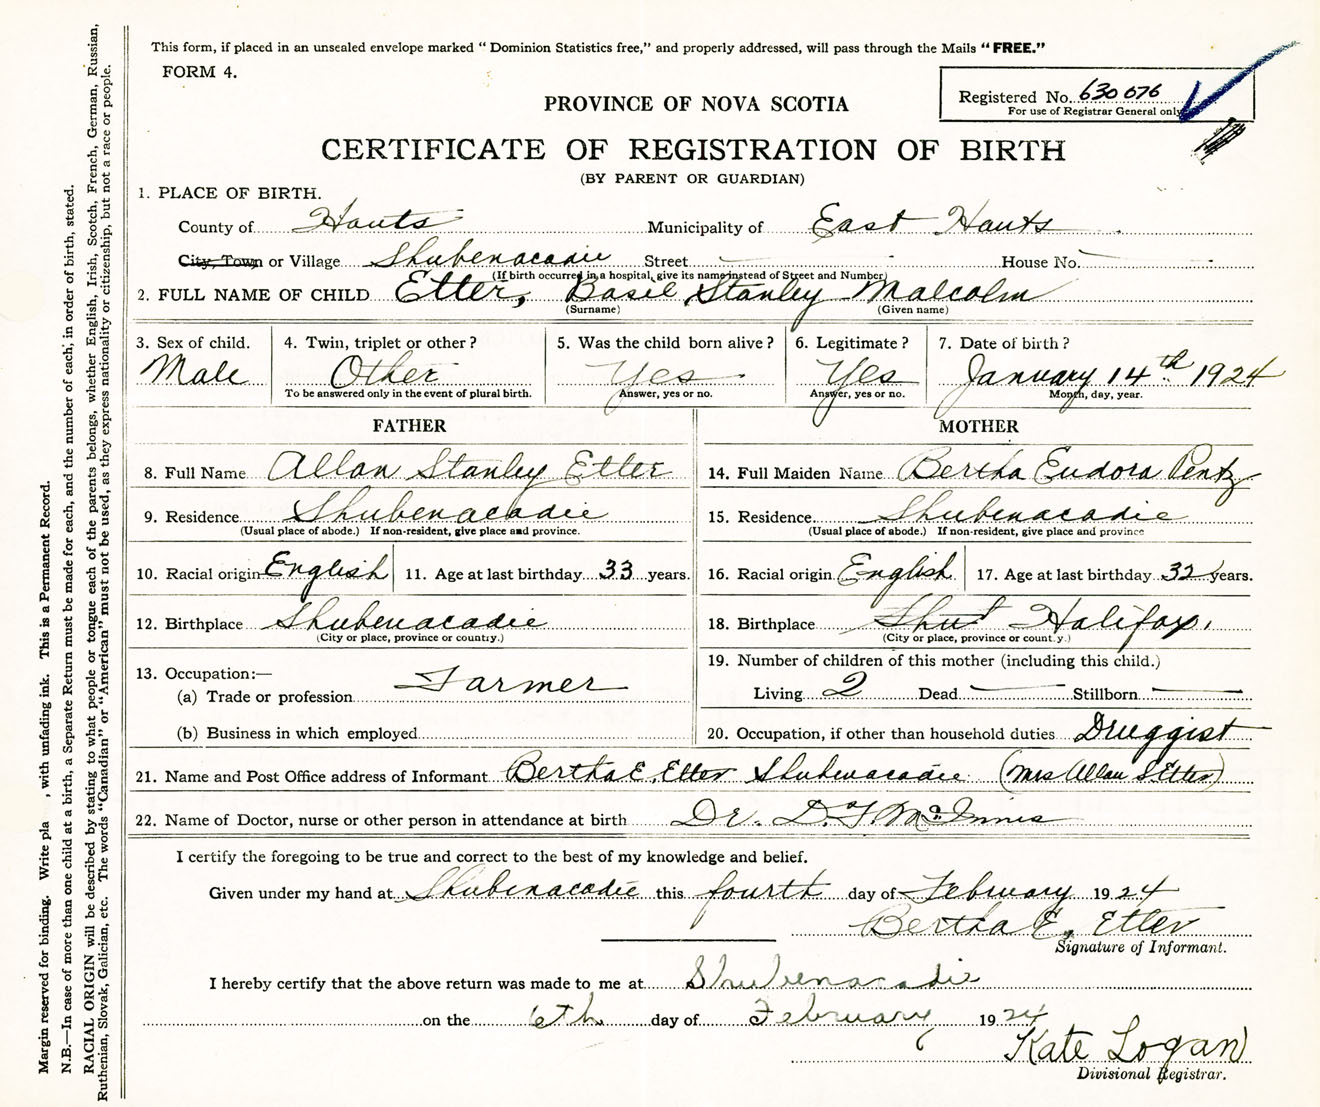 This form, if placed in an unsealed envelope marked “ Dominion Statistics free,” and properly addressed, will pass through the Mails “ FREE.”
FORM 4.
Registered No. 630 676
For use of Registrar General only
PROVINCE OF NOVA SCOTIA
CERTIFICATE OF REGISTRATION OF BIRTH
(BY PARENT OR GUARDIAN)
1. PLACE OF BIRTH.
County of Hants Municipality of East Hants
City, Town or Village Shubenacadie Street House No.
(If birth occurred in a hospital, give its name instead of Street and Number)
2. FULL NAME OF CHILD Etter, Basil Stanley Malcolm
(Surname) (Given name)
3. Sex of child. 4. Twin, triplet or other? 5. Was the child born alive? 6. Legitimate? 7. Date of birth?
Male Other Yes Yes January 14th 1924
To be answered only in the event of plural birth. Answer, yes or no. Answer, yes or no. Month, day, year.
FATHER MOTHER
8. Full Name Allan Stanley Etter 14. Full Maiden Name Bertha Eudora Pentz
9. Residence Shubenacadie 15. Residence Shubenacadie
(Usual place of abode.) If non-resident, give place and province. (Usual place of abode.) If non-resident, give place and province
10. Racial origin English 11. Age at last birthday 33 years. 16. Racial origin English 17. Age at last birthday 32 years.
12. Birthplace Shubenacadie 18. Birthplace Shut Halifax,
(City or place, province or country.) (City or place, province or country.)
13. Occupation:— 19. Number of children of this mother (including this child.)
(a) Trade or profession Farmer Living 2 Dead Stillborn
(b) Business in which employed 20. Occupation, if other than household duties Druggist
21. Name and Post Office address of Informant Bertha E. Etter Shubenacadie (Mrs Allan S Etter)
22. Name of Doctor, nurse or other person in attendance at birth Dr. D. F. McInnis
I certify the foregoing to be true and correct to the best of my knowledge and belief.
Given under my hand at Shubenacadie this fourth day of February 1924
Bertha E. Etter
Signature of Informant.
I hereby certify that the above return was made to me at Shubenacadie
on the 6th day of February 1924
Kate Logan
Divisional Registrar.
Margin reserved for binding. Write pla , with unfading ink. This is a Permanent Record.
N.B.—In case of more than one child at a birth, a Separate Return must be made for each, and the number of each, in order of birth, stated.
RACIAL ORIGIN will be described by stating to what people or tongue each of the parents belongs, whether English, Irish, Scotch, French, German, Russian,
Ruthenian, Slovak, Galician, etc. The words “Canadian” or “American” must not be used, as they express nationality or citizenship, but not a race or people.